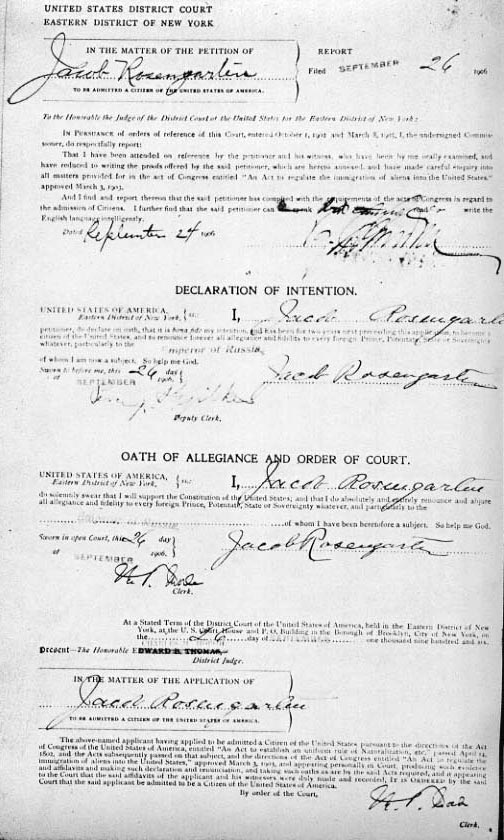 UNITED STATES DISTRICT COURT
EASTERN DISTRICT OF NEW YORK
IN THE MATTER OF THE PETITION OF
Jacob Rosengarten
TO BE ADMITTED A CITIZEN OF THE UNITED STATES OF AMERICA.
REPORT
Filed SEPTEMBER 26 1906
To the Honorable the Judge of the District Court of the United States for the Eastern District of New York:
IN PURSUANCE of orders of reference of this Court, entered October 1, and March 8, I, the undersigned Commis-
sioner, do respectfully report:
That I have been attended on reference by the petitioner and his witness, who have been by me orally examined, and
have reduced to writing the proofs offered by the said petitioner, which are hereto annexed, and have made careful enquiry into
all matters provided for in the act of Congress entitled "An Act to regulate the immigration of aliens into the United States,"
approved March 3, 1903.
And I find and report thereon that the said petitioner has complied with the requirements of the acts of Congress in regard to
the admission of Citizens. I further find that the said petitioner can speak write the
English language intelligently.
Dated September 24 1906
DECLARATION OF INTENTION.
UNITED STATES OF AMERICA,
Eastern District of New York, ss:
I, Jacob Rosengarten
petitioner, do declare on oath, that it is bona fide my intention, and has been for two years next preceding this application, to become a
citizen of the United States, and to renounce forever all allegiance and fidelity to every foreign Prince, Potentate, State or Sovereignty
whatever, particularly to the Emperor of Russia
of whom I am now a subject. So help me God.
Sworn to before me, this 26 day
of SEPTEMBER 1906.
Jacob Rosengarten
Deputy Clerk.
OATH OF ALLEGIANCE AND ORDER OF COURT.
UNITED STATES OF AMERICA,
Eastern District of New York, ss:
I, Jacob Rosengarten
do solemnly swear that I will support the Constitution of the United States; and that I do absolutely and entirely renounce and abjure
all allegiance and fidelity to every foreign Prince, Potentate, State or Sovereignty whatever, and particularly to the
of whom I have been heretofore a subject. So help me God.
Sworn in open Court, this 26 day
of SEPTEMBER 1906.
Jacob Rosengarten
Clerk.
At a Stated Term of the District Court of the United States of America, held in the Eastern District of New
York, at the U. S. Court House and P. O. Building in the Borough of Brooklyn, City of New York, on
the 26 day of SEPTEMBER one thousand nine hundred and six.
Present—The Honorable EDWARD B. THOMAS,
District Judge.
IN THE MATTER OF THE APPLICATION OF
Jacob Rosengarten
TO BE ADMITTED A CITIZEN OF THE UNITED STATES OF AMERICA.
The above-named applicant having applied to be admitted a Citizen of the United States pursuant to the directions of the Act
of Congress of the United States of America, entitled "An Act to establish an uniform rule of Naturalization, etc." passed April 14,
1802, and the Acts subsequently passed on that subject, and the directions of the Act of Congress entitled "An Act to regulate the
immigration of aliens into the United States," approved March 3, 1903, and appearing personally in Court, producing such evidence
and affidavits and making such declaration and renunciation, and taking such oaths as are by the said Acts required, and it appearing
to the Court that the said affidavits of the applicant and his witnesses were duly made and recorded, IT IS ORDERED by the said
Court that the said applicant be admitted to be a Citizen of the United States of America.
By order of the Court,
Clerk.